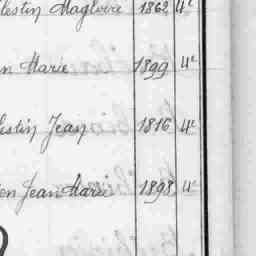 lestin Magloire 1862 4e
n Marie 1899 4e
lestin Jean 1816 4e
en Jean Marie 1898 4e